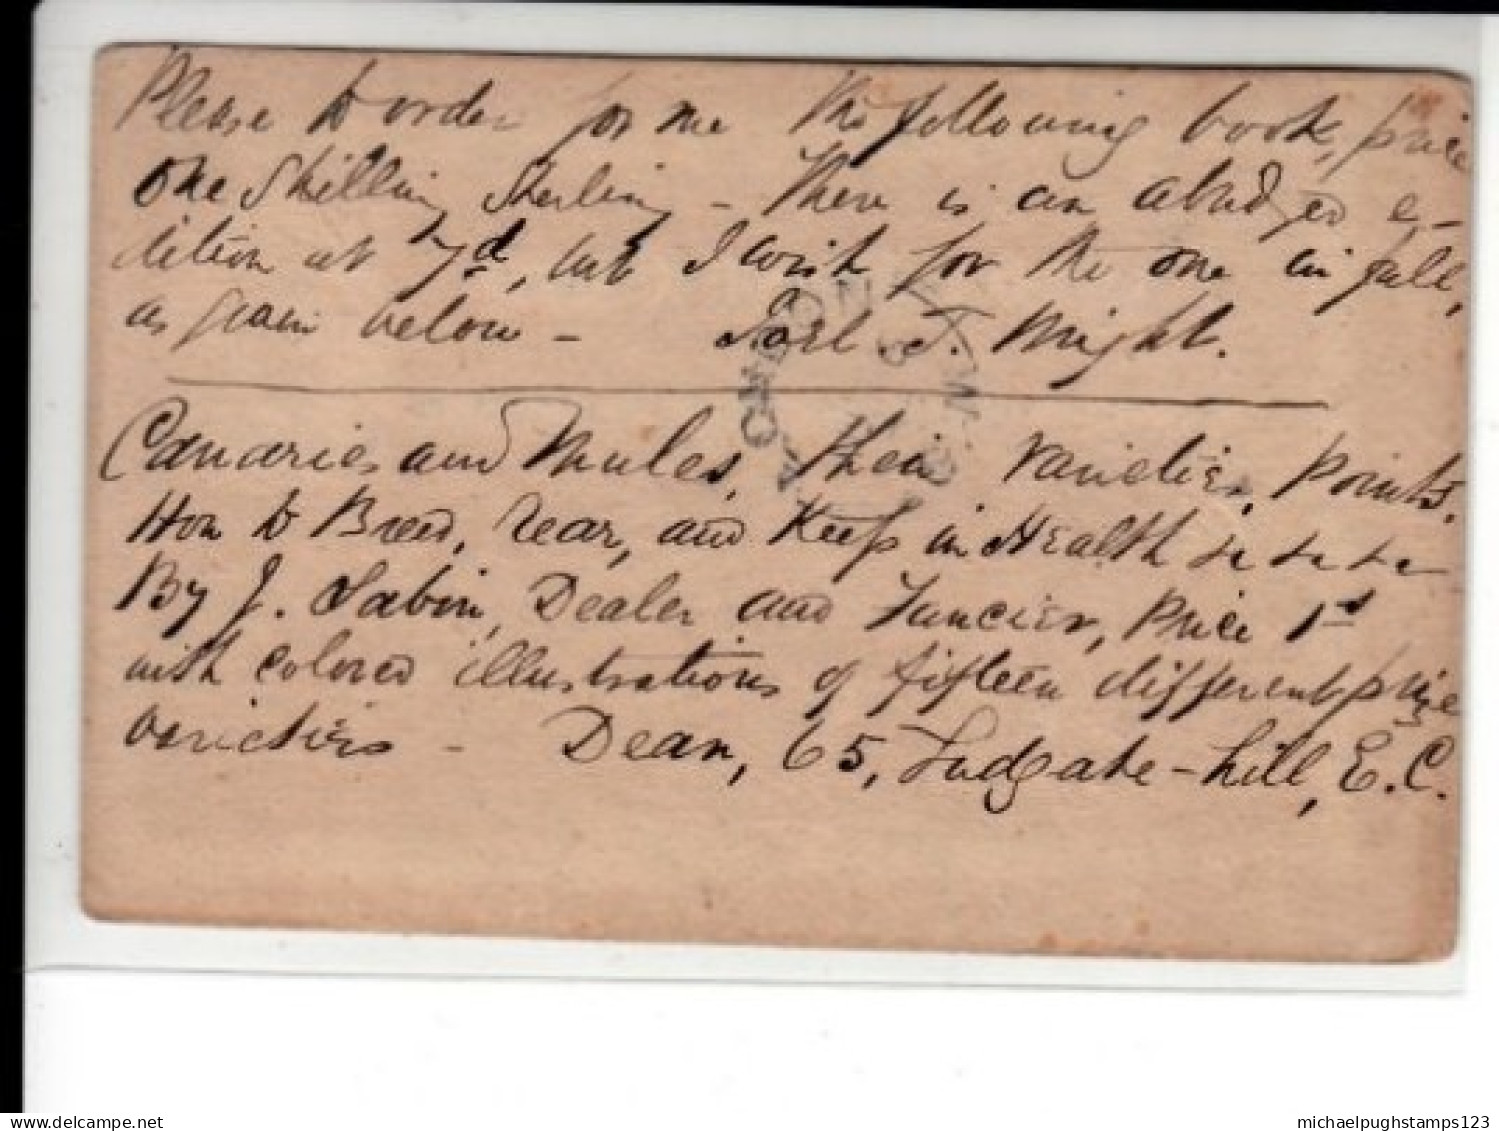 Please to order for me the following book, price
one Shilling Sterling – There is an abridged e-
dition at 7d, but I wish for the one in full,
as given below – T. Wright.
Canaries and Mules, their varieties, Points.
How to Breed, rear, and Keep in Health &c &c &c
By J. Sabin, Dealer and Fancier, Price 1s
with colored illustrations of fifteen different prize
varieties – Dean, 65, Ludgate-hill, E.C.
michaelpughstamps123